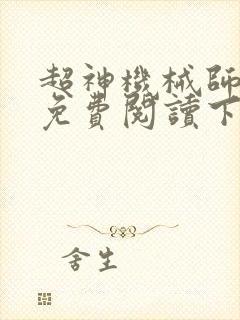 超神機械師
免費閱讀下
舍生